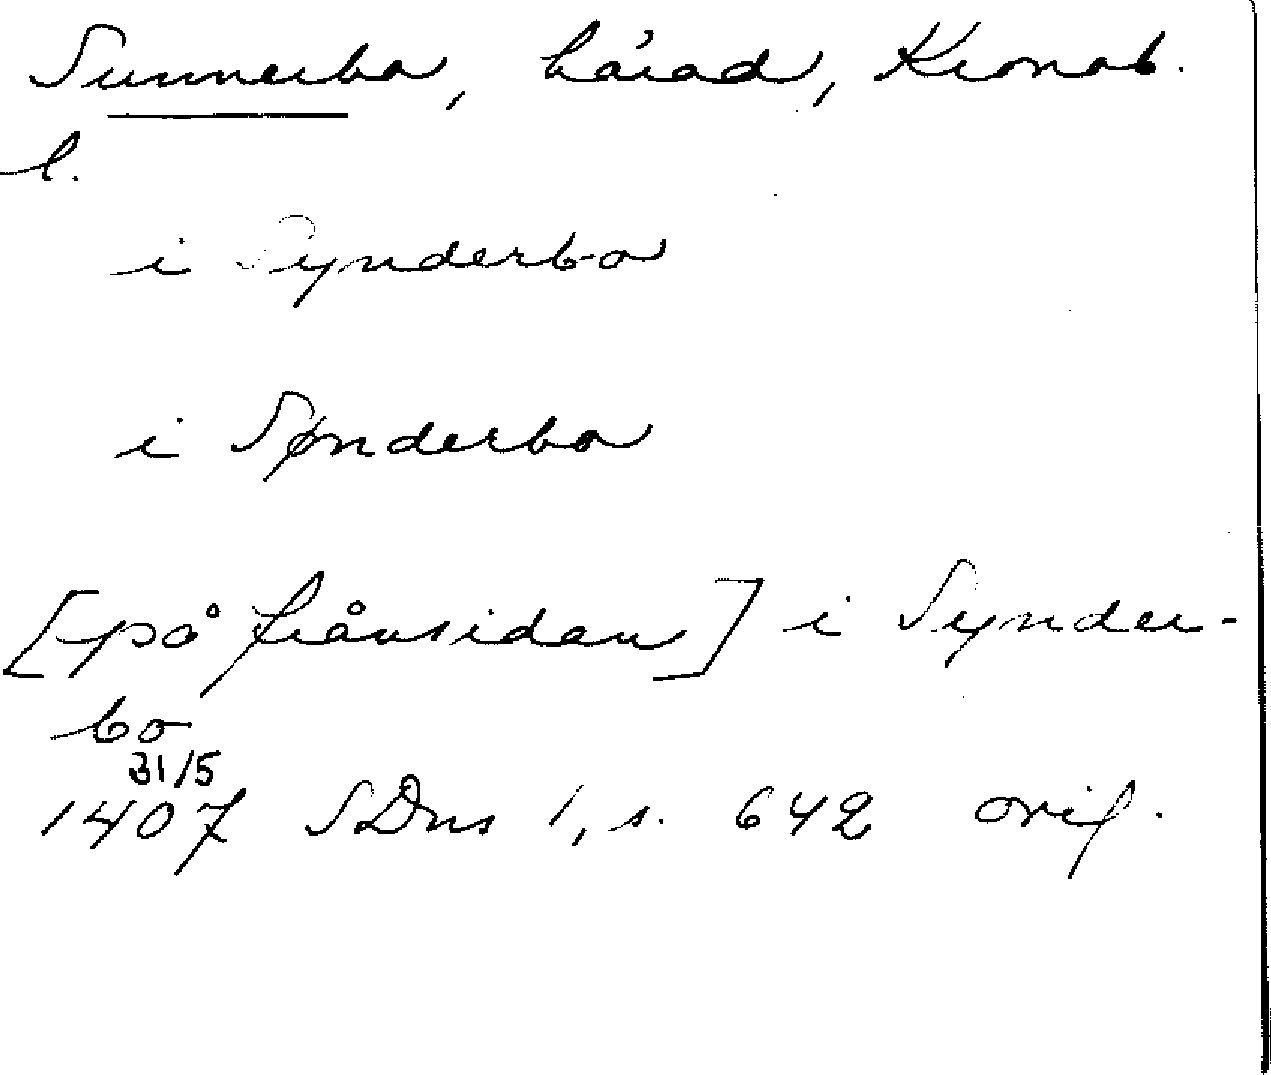 Sunnerbo, härad, Kronob.
l.
i Synderbo
i Sønderbo
[på frånsidan] i Synder-
bo
31/5
1407 SDns 1, s. 642 orig.